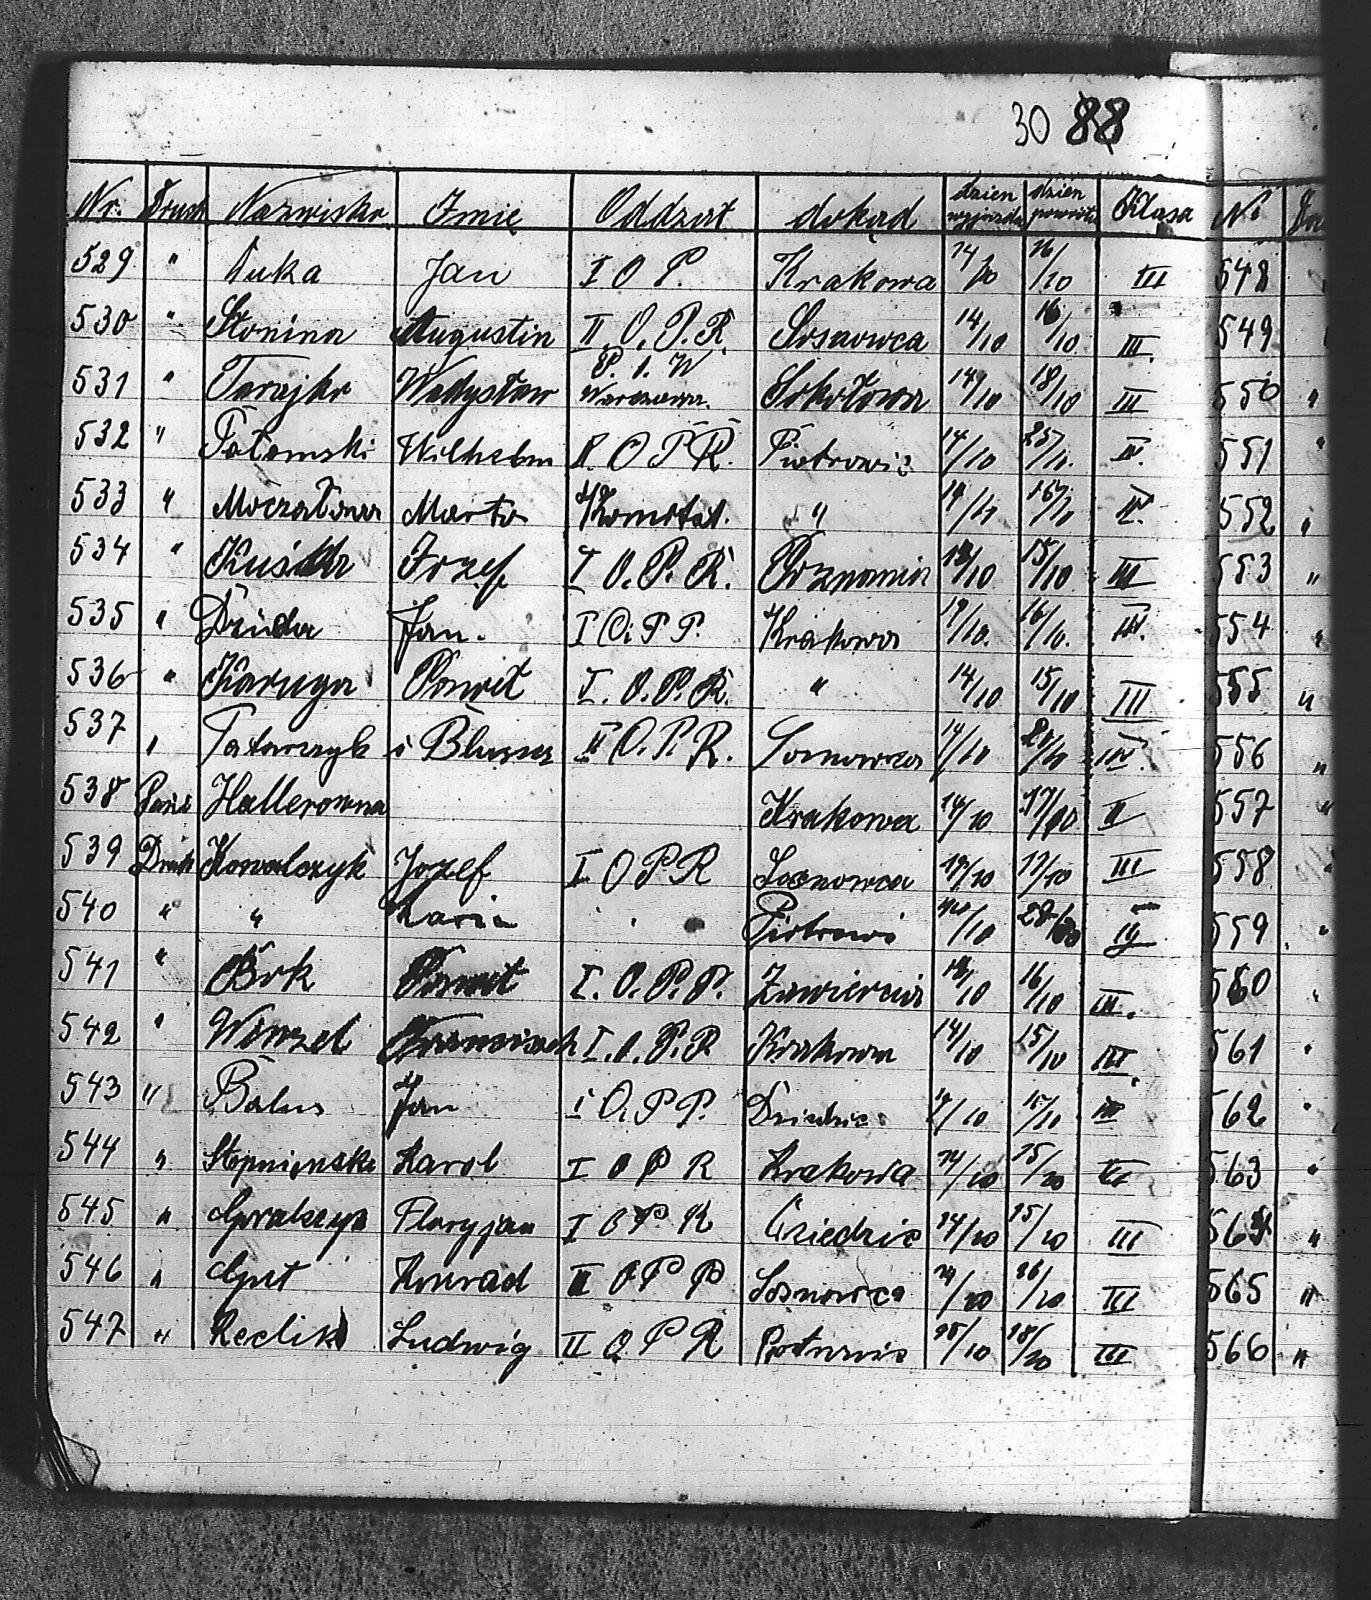 30 88
Nr. Druch Nazwisko Imię Oddział dokąd dzien wyjazdu dzien powrotu Klasa Nr
529 " Kuka Jan I O P. Krakowa 14/10 16/10 III 548
530 " Słonina Augustin II. O. P. R. Sosnowca 14/10 16/10 III. 549
531 " Tarajko Władysław P. 1. W Warszawa. Sokołowa 14/10 18/10 III 550 "
532 " Wilhelm II. O P R. Piotrowic 14/10 25/10. 551 "
533 " Marta Komitet. " 14/10 552 "
534 " Jozef I O. P. R. Poznania 15/10 III 553 "
535 " Dziuda Jan. I O. P P. Krakowa 16/10. III. 554 "
536 " Karuga Pawit I. O. P. R. " 14/10 15/10 III 555 "
537 " Tatarczyk i Bluszcz II O. P. R. Sosnowca 14/10 III 556 "
538 Pani Hallerowna Krakowa 14/10 17/10 II 557 "
539 Druh Kowalczyk Jozef I O P R Sosnowca 17/10 III 558 "
540 " " Karin " " Piotrowic 14/10 28/10 559 "
541 " Bok I. O. P. P. Zawiercia 16/10 III. 560 "
542 " Wenzel I. O. P. R. Krakowa 14/10 15/10 III. 561 "
543 " Balus Jan I O. P P. Dziedzic 14/10 15/10 III 562 "
544 " Karol I O P R Krakowa 14/10 15/10 III 563 "
545 " Gralczyk Floryjan I O P R Dziedzic 14/10 15/10 III 564 "
546 " Gut Konrad II O P P Sosnowca 14/10 16/10 III 565 "
547 " Reclik Ludwig II O P R Piotrowic 15/10 18/10 III 566 "